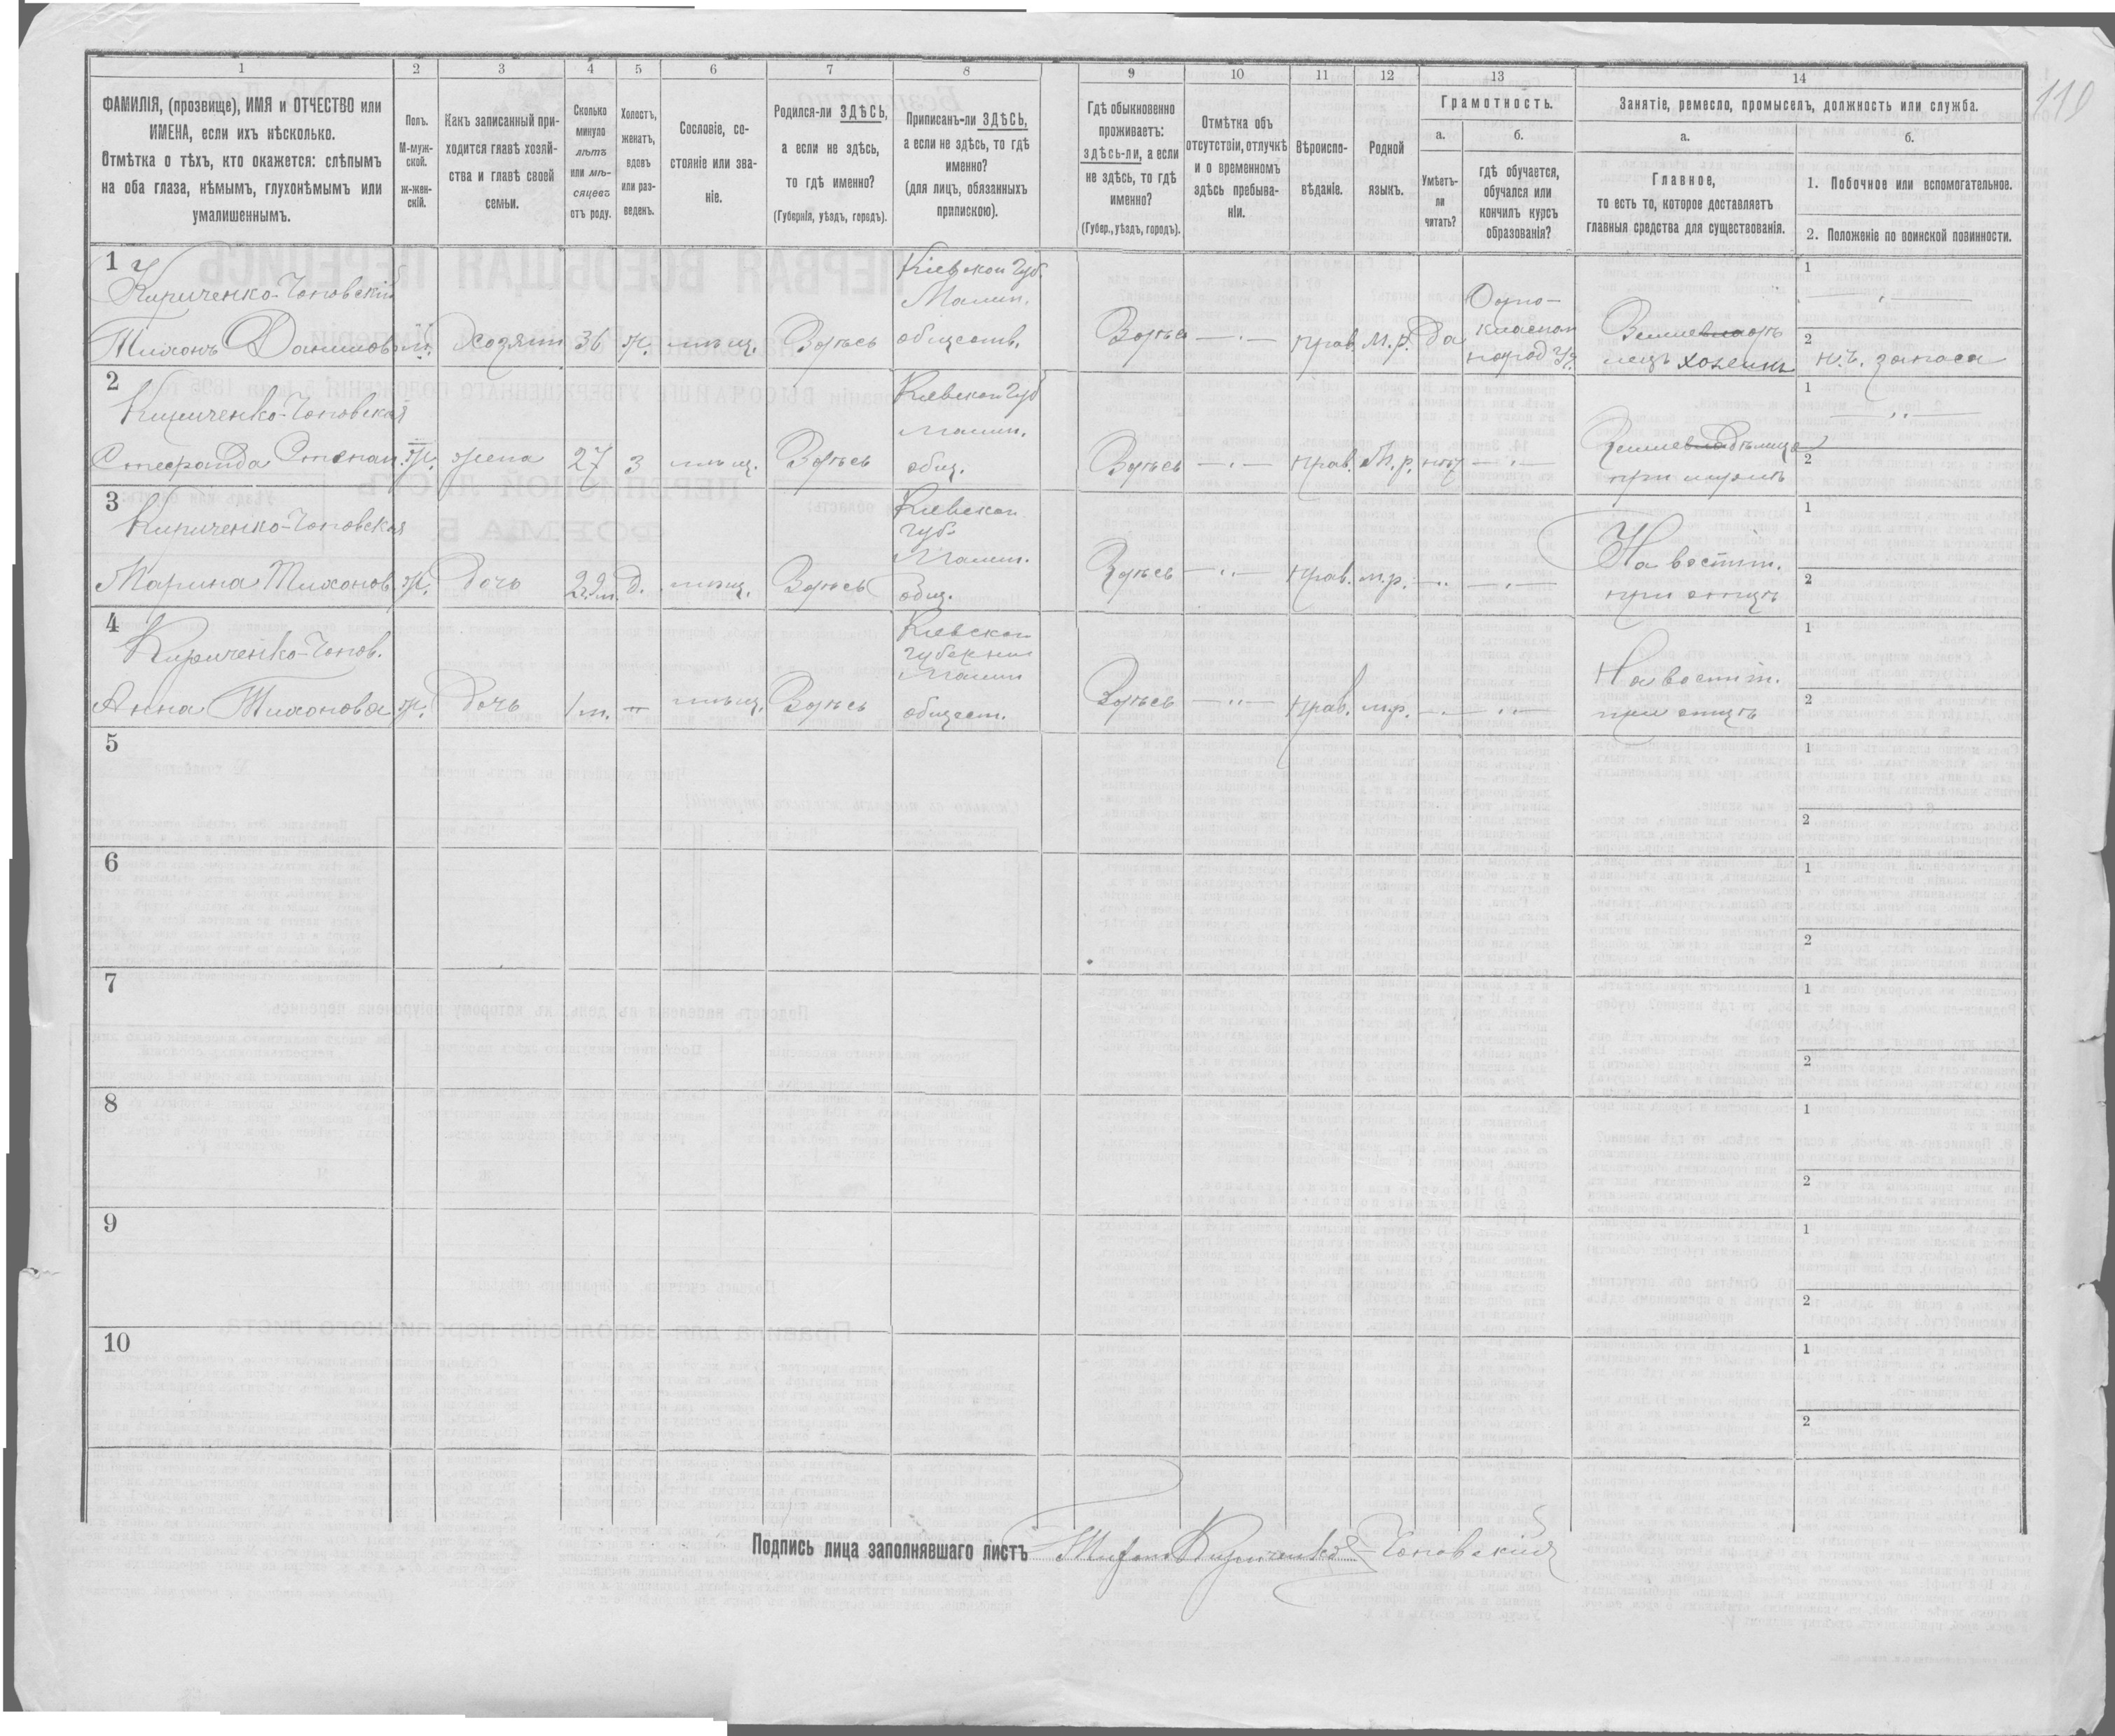 1 2 3 4 5 6 7 8 9 10 11 12 13 14
119
ФАМИЛІЯ, (прозвище), ИМЯ и ОТЧЕСТВО или
ИМЕНА, если ихъ нѣсколько.
Отмѣтка о тѣхъ, кто окажется: слѣпымъ
на оба глаза, нѣмымъ, глухонѣмымъ или
умалишеннымъ.
Полъ.
М-муж-
ской.
ж-жен-
скій.
Какъ записанный при-
ходится главѣ хозяй-
ства и главѣ своей
семьи.
Сколько
минуло
лѣтъ
или мѣ-
сяцевъ
отъ роду.
Холостъ,
женатъ,
вдовъ
или раз-
веденъ.
Сословіе, со-
стояніе или зва-
ніе.
Родился-ли ЗДѢСЬ,
а если не здѣсь,
то гдѣ именно?
(Губернія, уѣздъ, городъ).
Приписанъ-ли ЗДѢСЬ,
а если не здѣсь, то гдѣ
именно?
(для лицъ, обязанныхъ
припискою).
Гдѣ обыкновенно
проживаетъ:
здѣсь-ли, а если
не здѣсь, то гдѣ
именно?
(Губер., уѣздъ, городъ).
Отмѣтка объ
отсутствіи, отлучкѣ
и о временномъ
здѣсь пребыва-
ніи.
Вѣроиспо-
вѣданіе.
Родной
языкъ.
Грамотность.
а.
Умѣетъ-
ли
читать?
б.
гдѣ обучается,
обучался или
кончилъ курсъ
образованія?
Занятіе, ремесло, промыселъ, должность или служба.
а.
Главное,
то есть то, которое доставляетъ
главныя средства для существованія.
б.
1. Побочное или вспомогательное.
2. Положеніе по воинской повинности.
1
Кириченко-Чоповскій
Тихонъ Данилов. м. хозяин 36 ж. мѣщ. Здѣсь
Кіевской Губ.
Малин.
обществ.
Здѣсь — прав. м.р. да
Одно-
класном
народ. уч.
хозяинъ
1
2
н.ч. запаса
2
Кириченко-Чоповская
Степан. ж. жена 27 з мѣщ. Здѣсь
Кіевской Губ
Малин.
общ.
Здѣсь — прав. м.р. нѣт —
Землевладѣлица
при мужѣ
1
2
3
Кириченко-Чоповская
Марина Тихонов. ж. дочь д. мѣщ. Здѣсь
Кіевской
губ.
Малин.
общ.
Здѣсь — прав. м.р. — —
На воспит.
при отцѣ
1
2
4
Кириченко-Чопов.
Анна Тихонова ж. дочь 1 м. — мѣщ. Здѣсь
Кіевской
губерніи
Малин
общест.
Здѣсь — прав. м.р. — —
На воспит.
при отцѣ
1
2
5
1
2
6
1
2
7
1
2
8
1
2
9
1
2
10
1
2
Подпись лица заполнявшаго листъ Тихон Кириченко-Чоповский